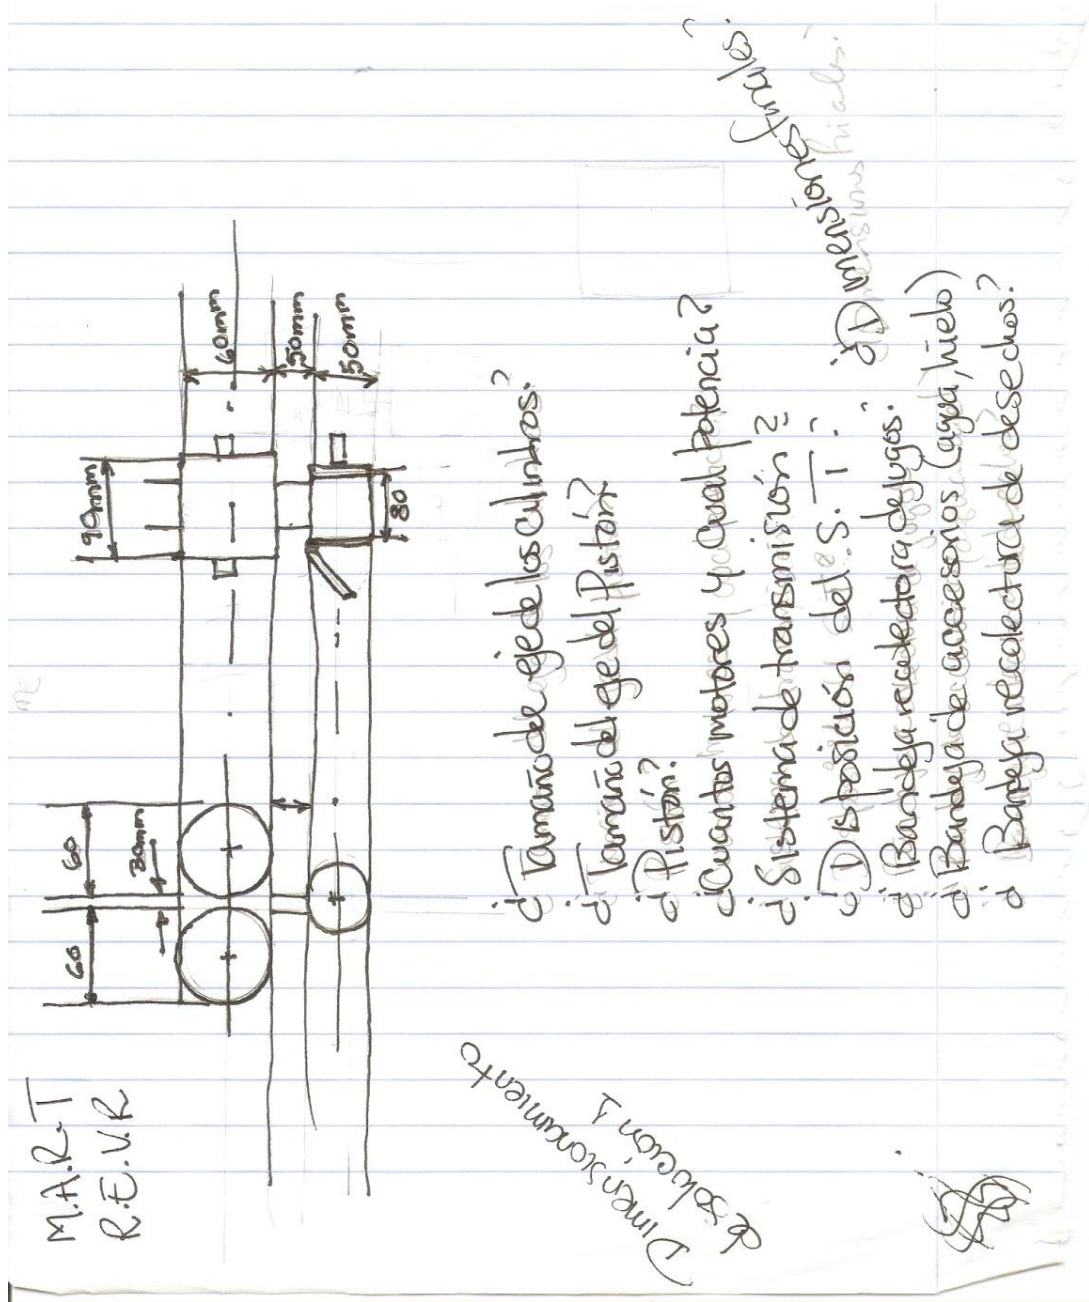 M.A.R.T
R.E.V.R
60
60
30mm
90mm
60mm
50mm
50mm
80
Dimensionamiento
de solución 1
¿Tamaño de eje de los cilindros?
¿Tamaño del eje del Pistón?
¿Pistón?
¿Cuantos motores y cual potencia?
¿Sistema de transmisión?
¿Disposición del S.T?
¿Bandeja recolectora de jugos?
¿Bandeja de accesorios (agua, hielo)
¿Bandeja recolectora de desechos?
¿Dimensiones finales?